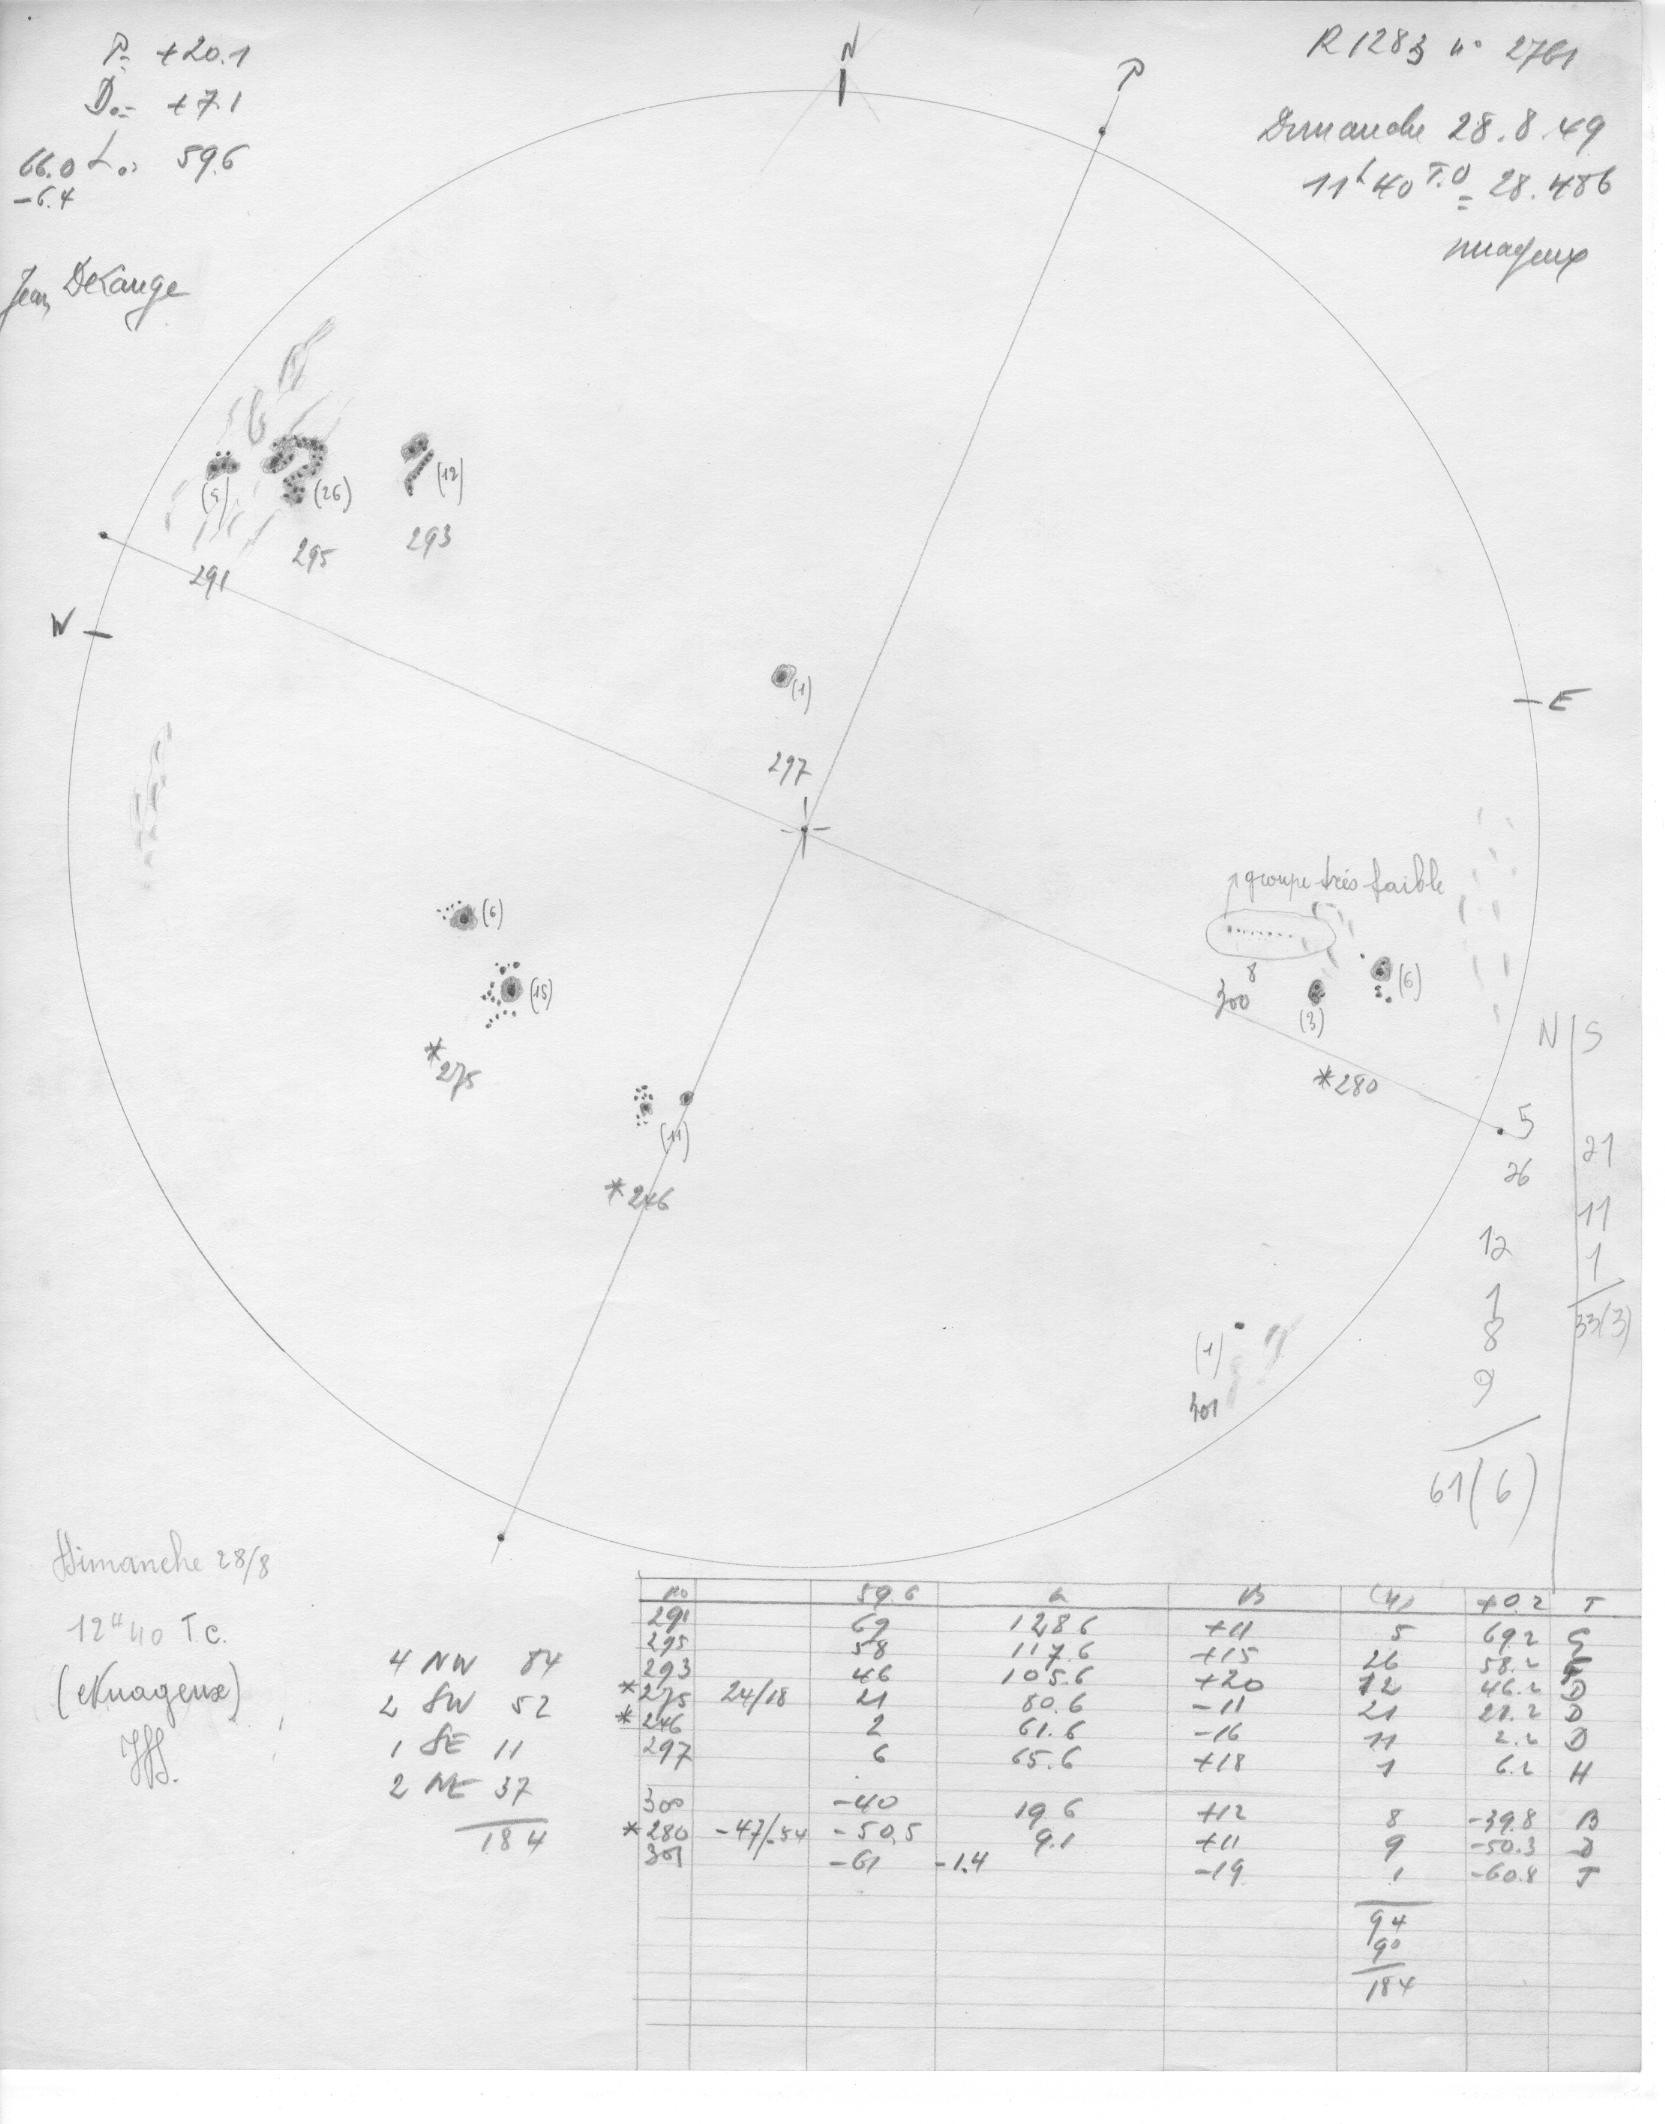 P= +20.1
D₀= +7.1
66.0 L₀= 59.6
-6.4
N
P
R 1283 n° 2761
Dimanche 28.8.49
11h40 T.U
= 28.486
nuageux
W
E
(5)
(26)
(12)
291
295
293
(1)
297
groupe très faible
8
300
(3)
(6)
*280
(6)
(15)
*275
(11)
*246
(1)
301
N | S
5
26
12
1
8
9
61(6)
21
11
1
33(3)
Dimanche 28/8
12H40 T.C.
(Nuageux)
4 NW 84
2 SW 52
1 SE 11
2 NE 37
184
no 59.6 L B (n) +0.2 T
291 69 128.6 +11 5 69.2 G
295 58 117.6 +15 26 58.2
293 46 105.6 +20 12 46.2 D
*275 24/18 21 80.6 -11 21 21.2 D
*246 2 61.6 -16 11 2.2 D
297 6 65.6 +18 1 6.2 H
300 -40 19.6 +12 8 -39.8 B
*280 -47/-54 -50.5 9.1 +11 9 -50.3 D
301 -61 -1.4 -19 1 -60.8 J
94
90
184